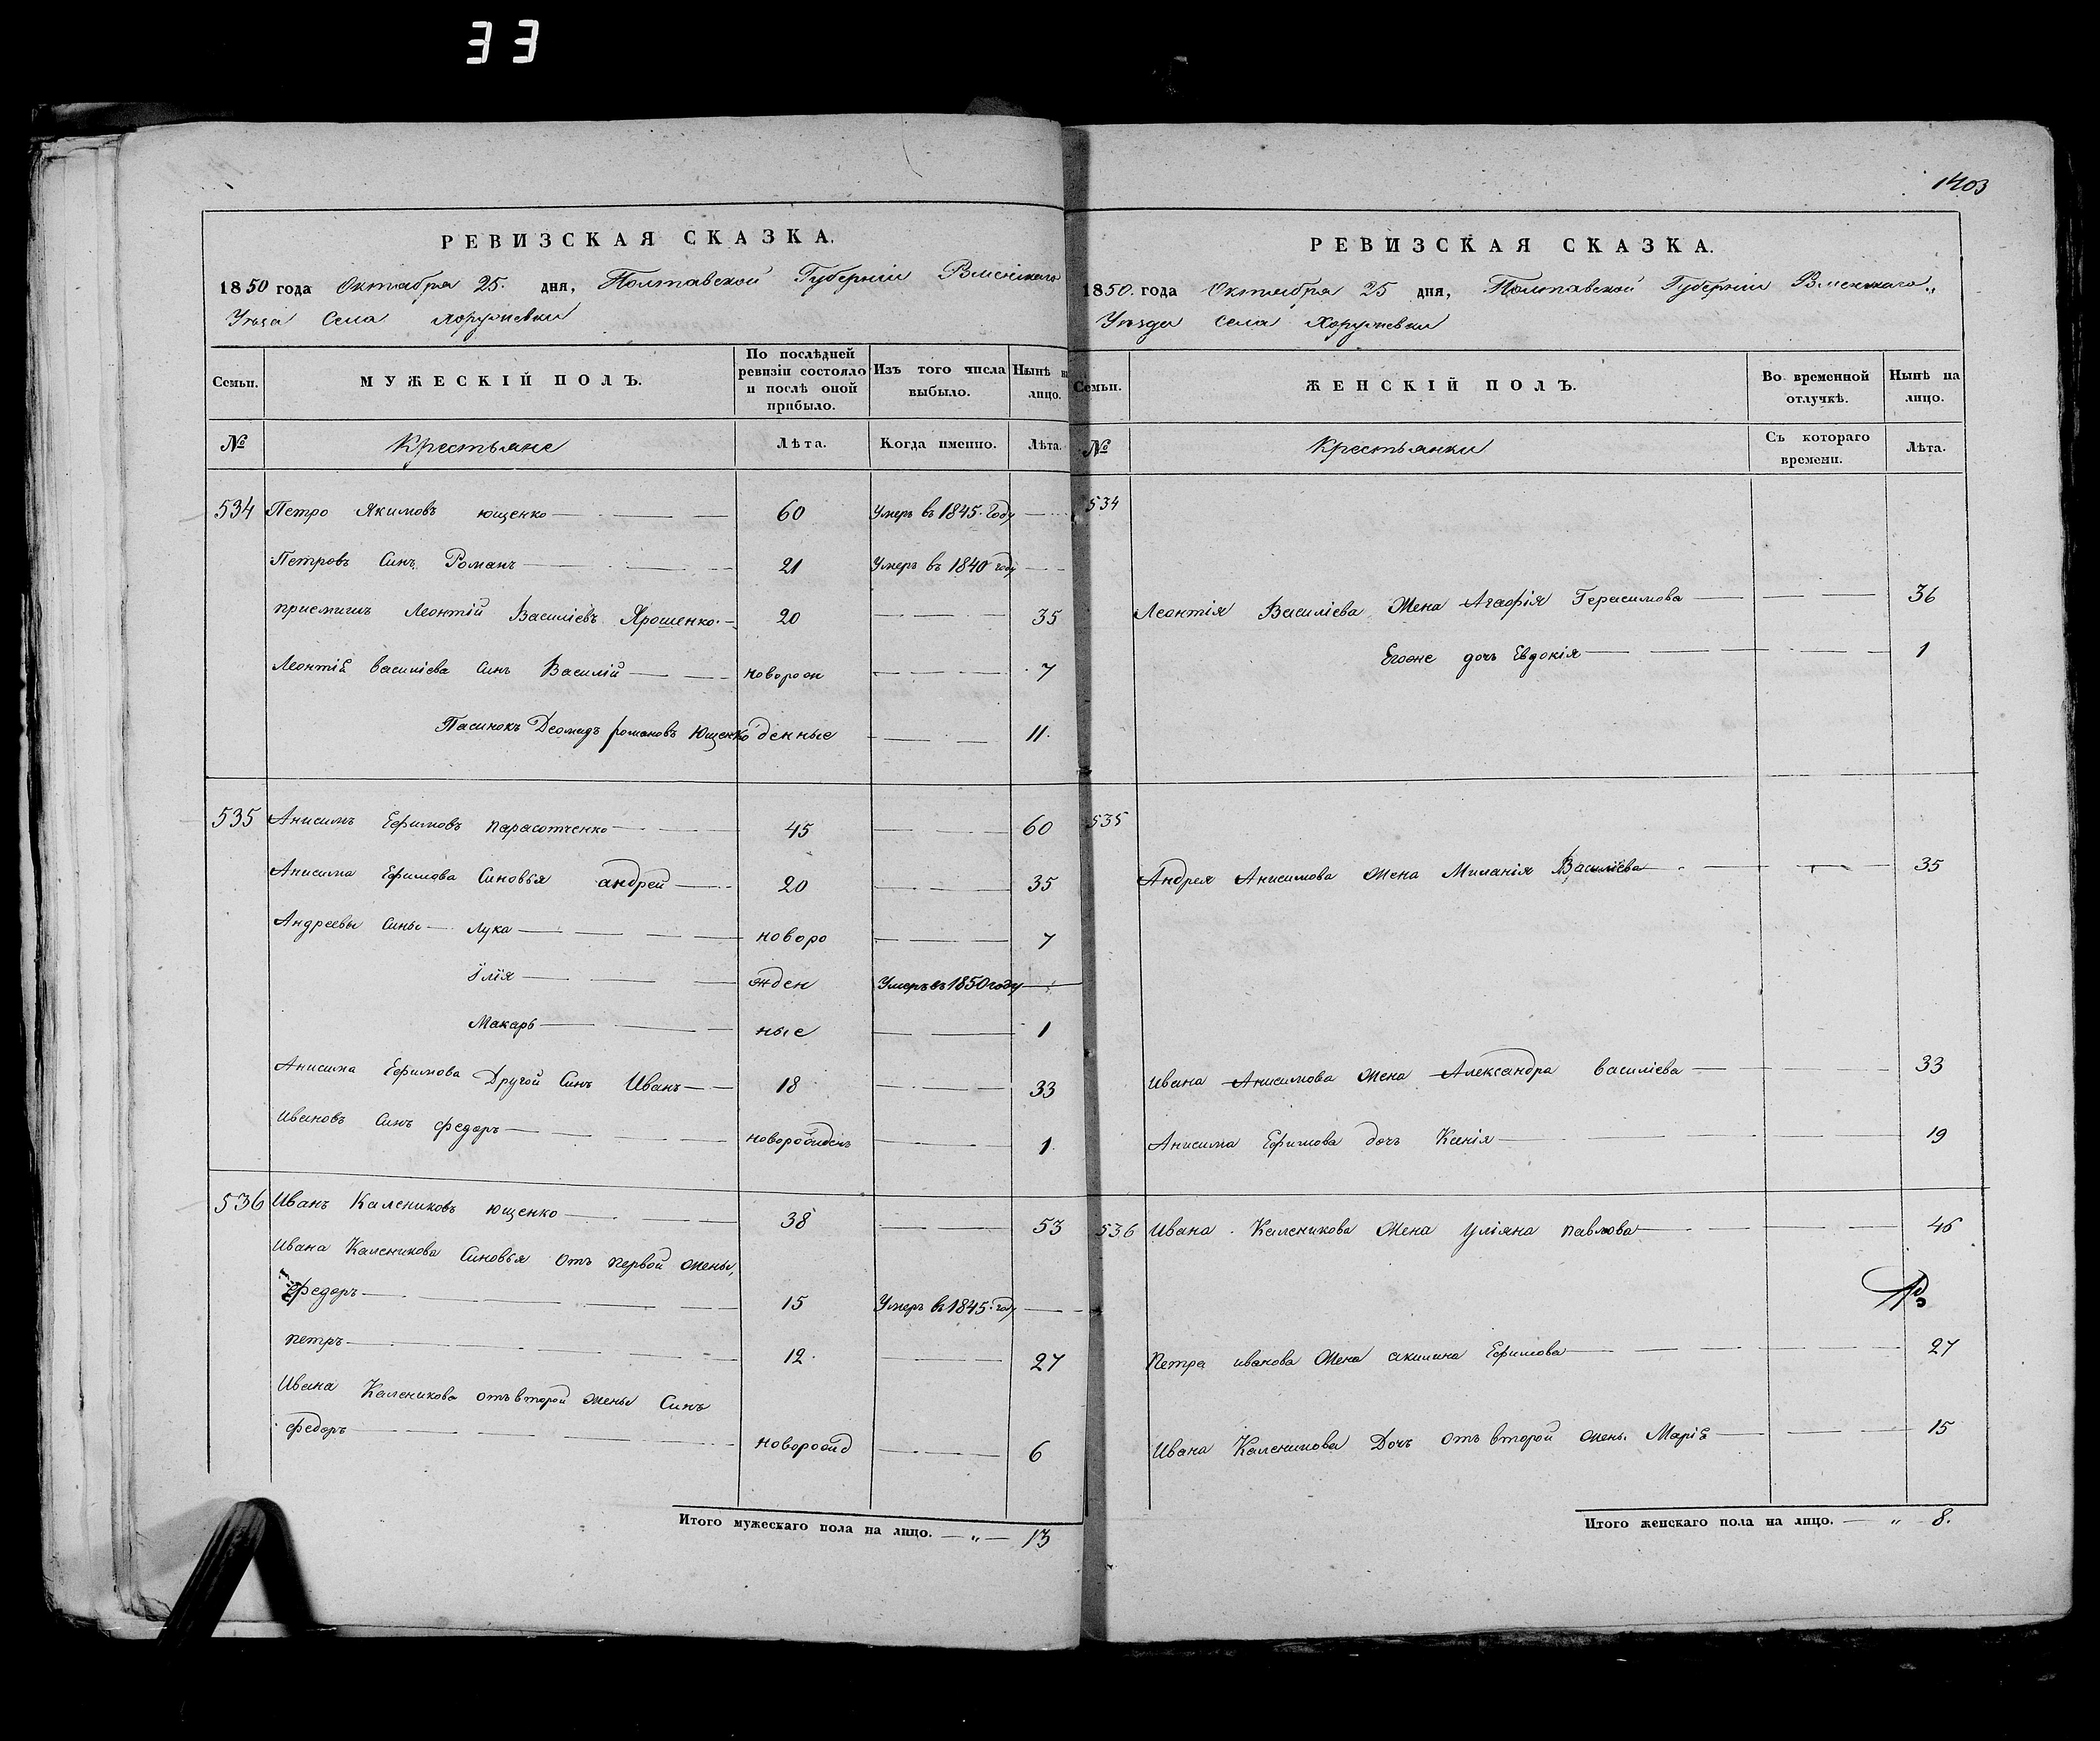 33
1403
РЕВИЗСКАЯ СКАЗКА.
1850 года Октября 25. дня, Полтавской Губерніи Рменскаго
Уѣзда Села Хоружевки
Семьи. МУЖЕСКІЙ ПОЛЪ. По послѣдней ревизіи состояло и послѣ оной прибыло. Изъ того числа выбыло. Нынѣ на лицо.
№ Крестьяне Лѣта. Когда именно. Лѣта.
534 Петро Якимовъ ющенко 60 Умеръ въ 1845. году
Петровъ Синъ Романъ 21 Умеръ въ 1840 году
приемишъ Леонтій Василіевъ Ярошенко 20 35
Леонтія василіева Синъ Василій новорож 7
Пасинокъ Деомидъ романовъ Ющенко денные 11.
535 Анисимъ Ефимовъ парасотченко 45 60
Анисима Ефимова Синовья андрей 20 35
Андреевы Сины Лука новоро 7
Ілія жден Умеръ въ 1850 году
Макаръ ные 1
Анисима Ефимова Другой Синъ Иванъ 18 33
Ивановъ Синъ федоръ новорожденъ 1
536 Иванъ Калениковъ ющенко 38 53
Ивана Каленикова Синовья отъ первой жены,
федоръ 15 Умеръ въ 1845. году
петръ 12. 27
Ивана Каленикова отъ второй жены Синъ
федоръ новорожд 6
Итого мужескаго пола на лицо. — „ — 13
РЕВИЗСКАЯ СКАЗКА.
1850. года Октября 25 дня, Полтавской Губерніи Рменскаго „
Уѣзда Села Хоружевки
Семьи. ЖЕНСКІЙ ПОЛЪ. Во временной отлучкѣ. Нынѣ на лицо.
№ Крестьянки Съ котораго времени. Лѣта.
534
Леонтія Василіева Жена Агафія Герасимова 36
Егоже дочъ Евдокія 1
535
Андрея Анисимова Жена Миланія Василіева 35
Ивана Анисимова Жена Александра василіева 33
Анисима Ефимова дочъ Ксенія 19
536 Ивана Каленикова Жена Уліяна павлова 46
Петра иванова Жена акилина Ефимова 27
Ивана Каленикова Дочъ отъ второй жены Марія 15
Итого женскаго пола на лицо. — „ 8.